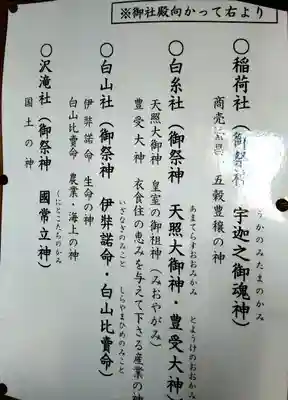 ※御社殿向かって右より
〇稲荷社(御祭神 宇迦之御魂神)
うかのみたまのかみ
商売繁昌 五穀豊穣の神
〇白糸社(御祭神 天照大御神・豊受大神)
あまてらすおおみかみ とようけのおおかみ
天照大御神 皇室の御祖神(みおやがみ)
豊受大神 衣食住の恵みを与えて下さる産業の神
〇白山社(御祭神 伊弉諾命・白山比賣命)
いざなぎのみこと しらやまひめのみこと
伊弉諾命 生命の神
白山比賣命 農業・海上の神
〇沢滝社(御祭神 國常立神)
くにとこたちのかみ
国土の神